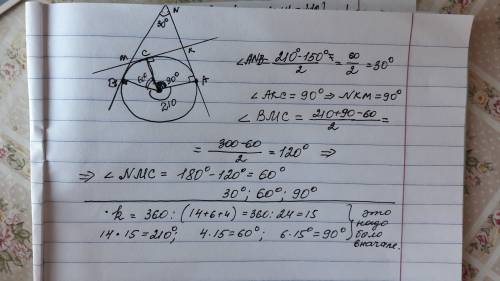 N
30°
m
C
K
B
60°
90°
A
210
∠ANB = (210° - 150°)/2 = 60/2 = 30°
∠AKC = 90° ⇒ NKM = 90°
∠BMC = (210 + 90 - 60)/2 =
= (300 - 60)/2 = 120° ⇒
⇒ ∠NMC = 180° - 120° = 60°
30°; 60°; 90°
· k = 360 : (14+6+4) = 360 : 24 = 15
14 · 15 = 210°; 4 · 15 = 60°; 6 · 15° = 90°
это
надо
было
вначале.